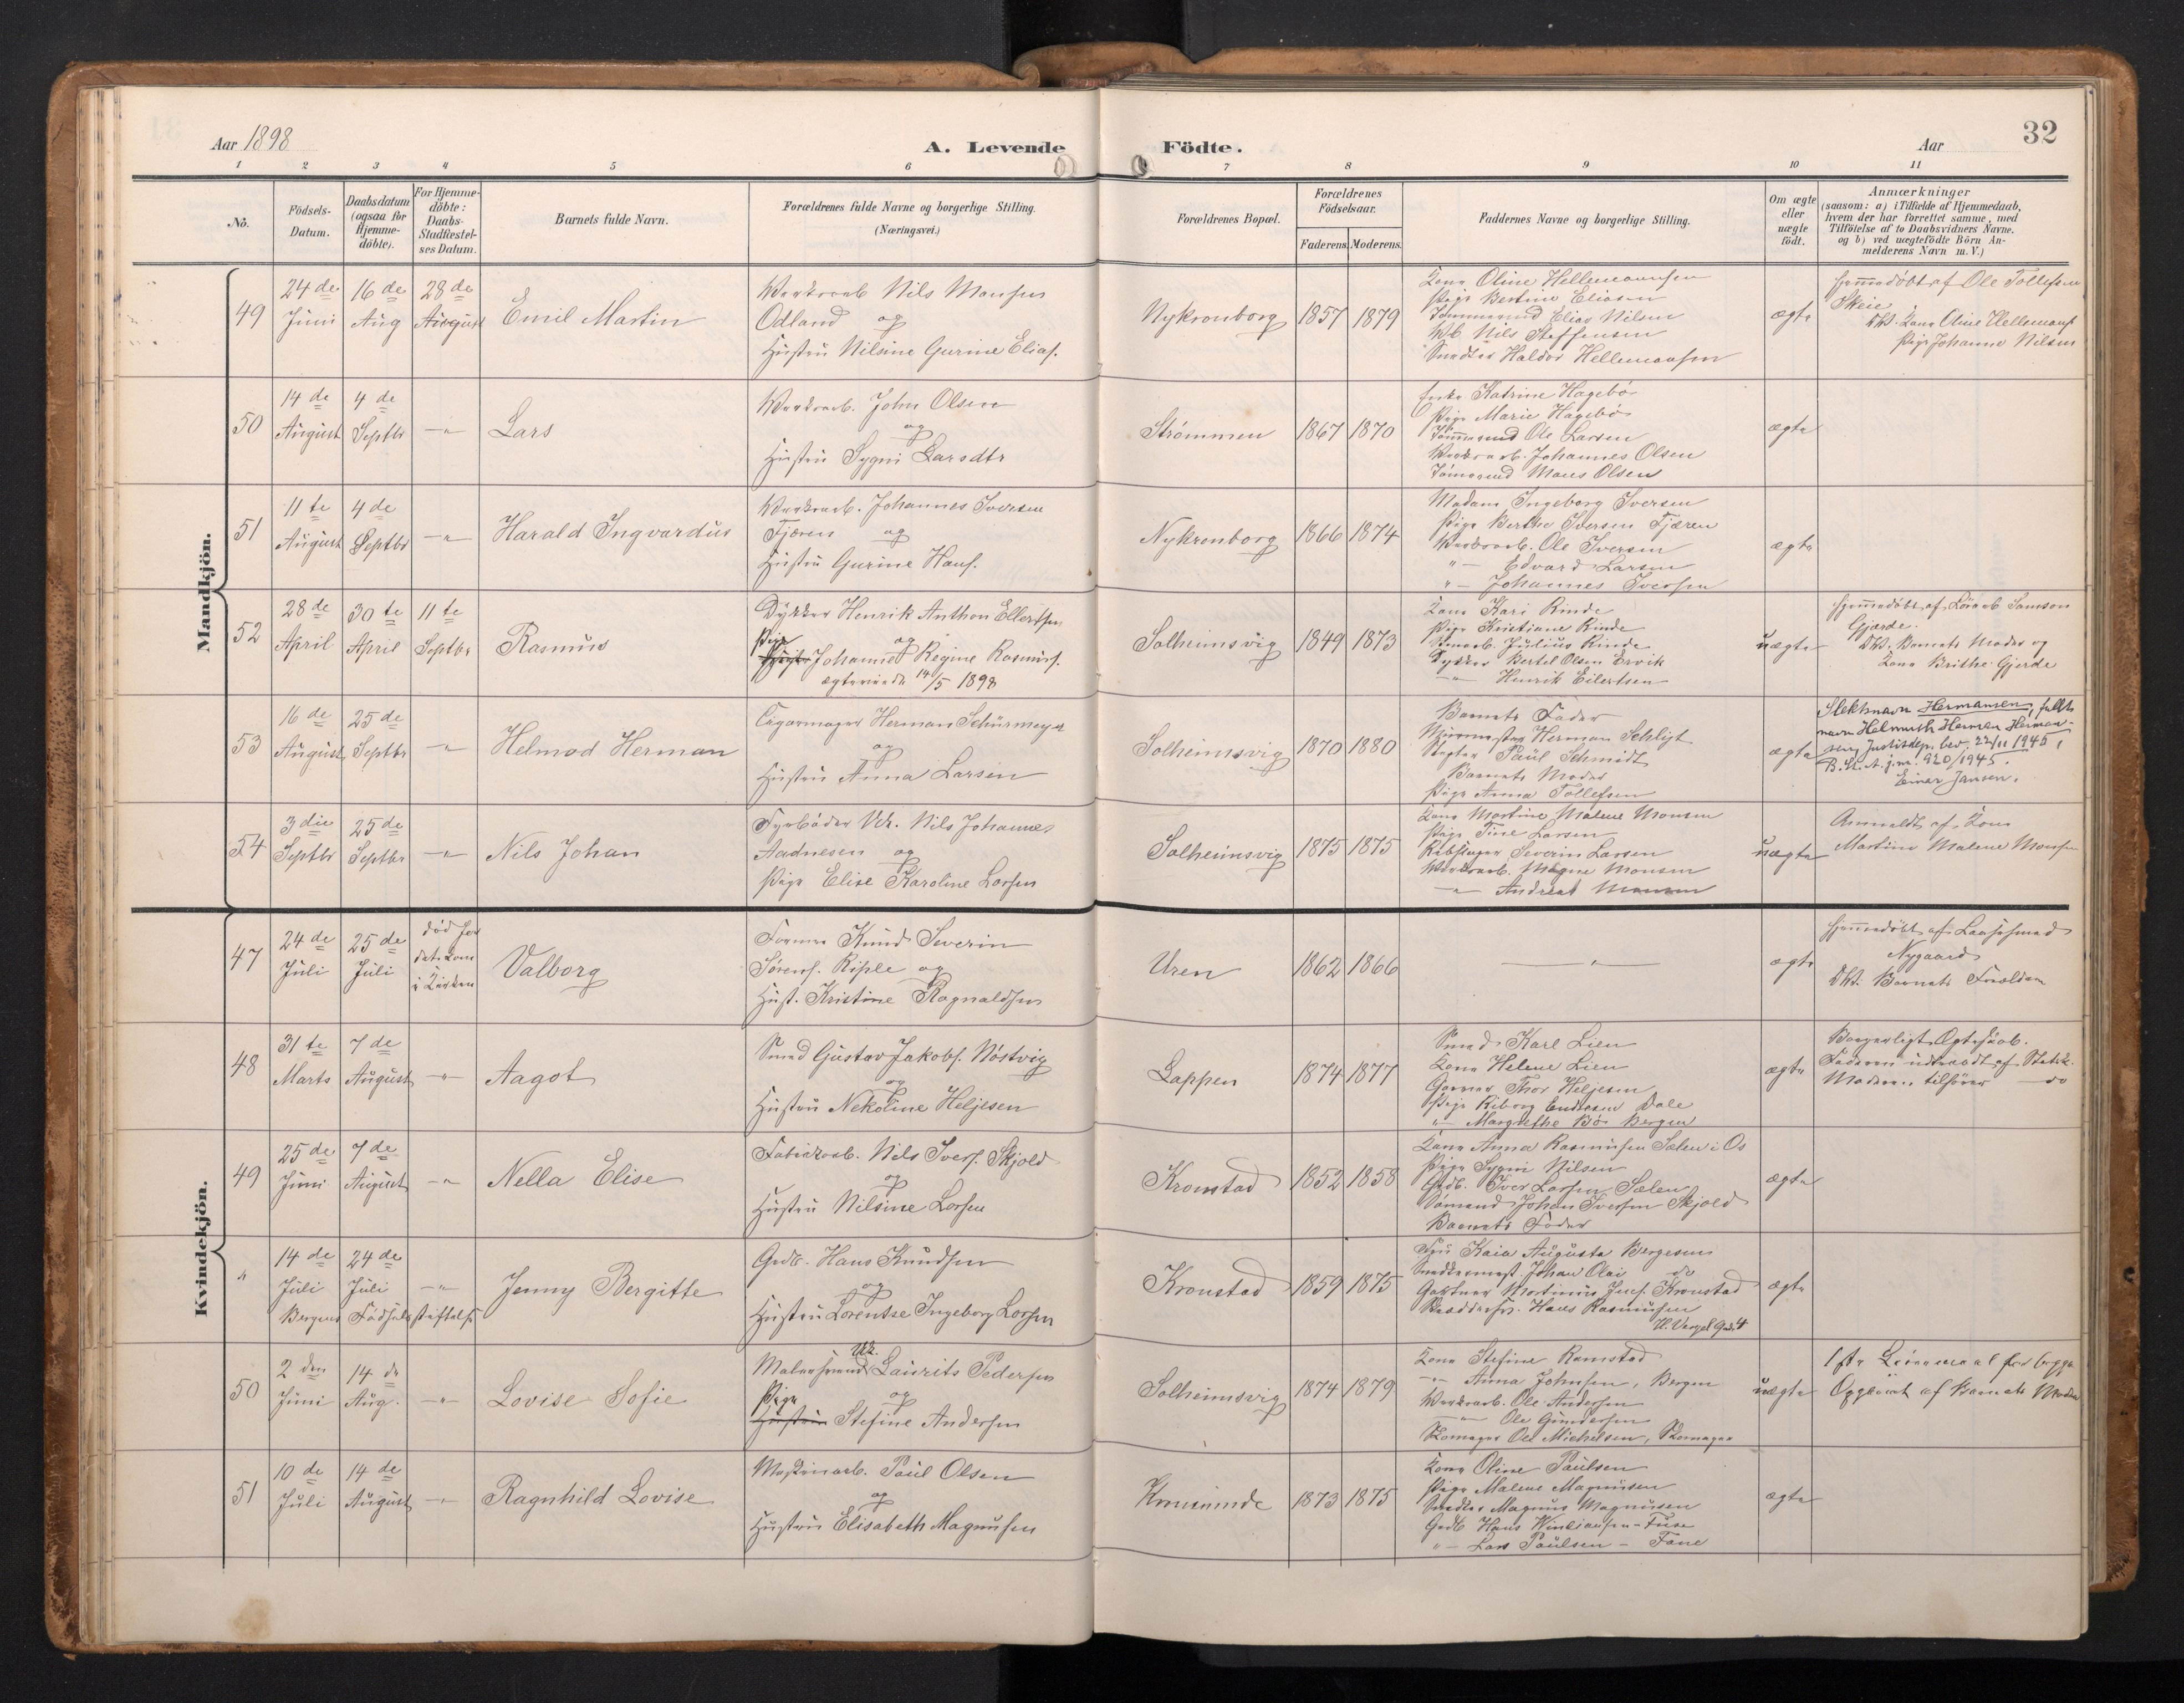 Aar 1898
A. Levende Födte.
Aar
32
1 2 3 4 5 6 7 8 9 10 11
No.
Födsels-
Datum.
Daabsdatum
(ogsaa for
Hjemme-
döbte).
For Hjemme-
döbte:
Daabs-
Stadfæstel-
ses Datum.
Barnets fulde Navn.
Forældrenes fulde Navne og borgerlige Stilling.
(Næringsvei.)
Forældrenes Bopæl.
Forældrenes
Födselsaar.
Faderens. Moderens.
Faddernes Navne og borgerlige Stilling.
Om ægte
eller
uægte
født.
Anmærkninger
(saasom: a) i Tilfælde af Hjemmedaab,
hvem der har forrettet samme, med
Tilföielse af to Daabsvidners Navne.
og b) ved uægtefödte Börn An-
melderens Navn m. V.)
Mandkjön.
49
24de
Juni
16de
Aug
28de
August
Emil Martin
Nils Monsen
Odland og
Hustru Nilsine Gurine Elias.
Nykronborg
1857 1879
Kone Oline Hellemannsen
Pige Bertine Eliasen
Tömmermd Elias Nilsen
Nils Steffensen
Snedker Haldor Hellemansen
ægte
Hjemmedöbt af Ole Tollefsen
Skeie
DV. Kone Oline Hellemans
Pige Johanne Nilsen
50
14de
August
4de
Septbr
-"-
Lars
John Olsen
og
Hustru Sygni Larsdtr
Strömmen
1867 1870
Enke Katrine Hagebö
Pige Marie Hagebö
Tömmermd Ole Larsen
Johannes Olsen
Tömmermd Mons Olsen
ægte
51
11te
August
4de
Septbr
-"-
Harald Ingvardus
Johannes Iversen
Tjæren og
Hustru Gurine Hans.
Nykronborg
1866 1874
Madam Ingeborg Iversen
Pige Berthe Iversen Tjæren
Ole Iversen
"- Edvard Larsen
"- Johannes Iversen
ægte
52
28de
April
30te
April
11te
Septbr
Rasmus
Dykker Henrik Anthon Ellertsen
og
Pige Johanne Regine Rasmus.
ægteviede 14/5 1898
Solheimsvig
1849 1873
Kone Kari Rinde
Pige Kristiane Rinde
Julius Rinde
Dykker Bertel Olsen Ervik
-"- Henrik Eilertsen
uægte
Hjemmedöbt af Samson
Gjærde.
DV. Barnets Moder og
Kone Brithe Gjerde
53
16de
August
25de
Septbr
-"-
Helmod Herman
Cigarmager Herman Schürmeyer
og
Hustru Anna Larsen
Solheimsvig
1870 1880
Barnets Fader
Herman Schligt
Paul Schmidt
Barnets Moder
Pige Anna Tollefsen
ægte
Slektsnavn Hermansen, fullt
navn Helmuth Herman Herman-
sen, Justisdep. bev. 22/11 1945,
B. St. A. j.nr. 920/1945.
Einar Jansen.
54
3die
Septbr
25de
Septbr
-"-
Nils Johan
Fyrböder Uk. Nils Johannes
Aadnesen og
Pige Elise Karoline Larsen
Solheimsvig
1875 1875
Kone Martine Malene Monsen
Pige Tine Larsen
Severin Larsen
Magne Monsen
-"- Andreas Monsen
uægte
Anmeldt af Kone
Martine Malene Monsen
Kvindekjön.
47
24de
Juli
25de
Juli
död för
det kom
i Kirken
Valborg
Former Knud Severin
Sörens. Risple og
Hust. Kristine Ragnaldsen
Uren
1862 1866
-"-
ægte
Hjemmedöbt af
Nygaard
DV. Barnets Forældre
48
31te
Marts
7de
August
-"-
Aagot
Smed Gustav Jakobs. Nöstvig
og
Hustru Nekoline Heljesen
Lappen
1874 1877
Smed Karl Lien
Kone Helene Lien
Thor Heljesen
Pige Riborg Endresen Dale
"- Margrethe Bö Bergen
ægte
Borgerligt Ægteskab.
Faderen udtraadt af Statsk.
Moderen tilhörer do
49
25de
Juni
7de
August
-"-
Nella Elise
Fabrikarb. Nils Ivers. Skjold
og
Hustru Nilsine Larsen
Kronstad
1852 1858
Kone Anna Rasmusen Sælen i Os
Pige Sygni Nilsen
Gdb. Iver Larsen Sælen
Sömand Johan Iversen Skjold
Barnets Fader
ægte
"
14de
Juli
24de
Juli
-"-
Bergens Födselsstiftelse
Jenny Bergitte
Gdb. Hans Knudsen
og
Hustru Lorentse Ingeborg Larsen
Kronstad
1859 1875
Fru Kaia Augusta Bergesen
Snedkermest. Johan Olai do
Gartner Mortinus Jens. Kronstad
Hans Rasmusen
ægte
50
2den
Juni
14de
Aug.
-"-
Lovise Sofie
Malersvend Uk. Laurits Pedersen
og
Pige Stefine Andersen
Solheimsvig
1874 1879
Kone Stefine Ramstad
-"- Anna Johnsen, Bergen
Ole Andersen
-"- Ole Gundersen
Skomager Ole Michelsen, Skomager
uægte
1ste Leiermaal for begge
Opgivet af Barnets Moder
51
10de
Juli
14de
August
-"-
Ragnhild Lovise
Maskinarb. Paul Olsen
og
Hustru Elisabeth Magnusen
Kronminde
1873 1875
Kone Oline Paulsen
Pige Malene Magnusen
Snedker Magnus Magnusen
Gdb. Hans - Fuse
"- Lars Paulsen - Fane
ægte